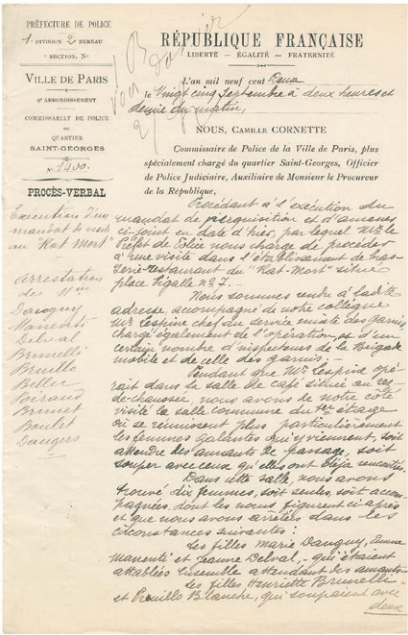 PRÉFECTURE DE POLICE
1 DIVISION 2 BUREAU
SECTION, N°
VILLE DE PARIS
9e ARRONDISSEMENT
COMMISSARIAT DE POLICE
DU
QUARTIER
SAINT-GEORGES
N° 1400.
PROCÈS-VERBAL
Exécution d'un
mandat de visite
au "Rat Mort"
Arrestation
des Nées
Dauguy
Manenti
Delval
Brunelli
Bellec
Poiraud
Brunet
Boulet
Daugers
RÉPUBLIQUE FRANÇAISE
LIBERTÉ — ÉGALITÉ — FRATERNITÉ
L'an mil neuf cent Deux
le Vingt cinq Septembre à deux heures et
demie du matin,
NOUS, CAMILLE CORNETTE
Commissaire de Police de la Ville de Paris, plus
spécialement chargé du quartier Saint-Georges, Officier
de Police Judiciaire, Auxiliaire de Monsieur le Procureur
de la République,
Procédant à l'exécution du
mandat de perquisition et d'amener
ci-joint en date d'hier, par lequel Mr le
Préfet de Police nous charge de procéder
à une visite dans l'établissement de
Restaurant du "Rat-Mort" situé
place Pigalle n° 7. -
Nous sommes rendu à ladite
adresse accompagné de notre collègue
Mr Lespine chef du service mixte des garnis
chargé également de l'opération, et d'un
certain nombre d'inspecteurs de la Brigade
mobile et de celle des garnis. -
Pendant que Mr Lespine opé-
rait dans la salle de café située au rez-
de-chaussée, nous avons de notre côté
visité la salle commune du 1er étage
où se réunissent plus particulièrement
les femmes galantes qui y viennent, soit
attendre des amants de passage, soit
souper avec ceux qu'elles ont déjà rencontrés.
Dans cette salle, nous avons
trouvé dix femmes, soit seules, soit accom-
pagnées, dont les noms figurent ci-après
et que nous avons arrêtées dans les
circonstances suivantes :
Les filles Marie Dauguy,
Manenti et Jeanne Delval, - qui étaient
attablées ensemble attendant des amants.
Les filles Henriette Brunelli
et Blanche, qui soupaient avec
deux